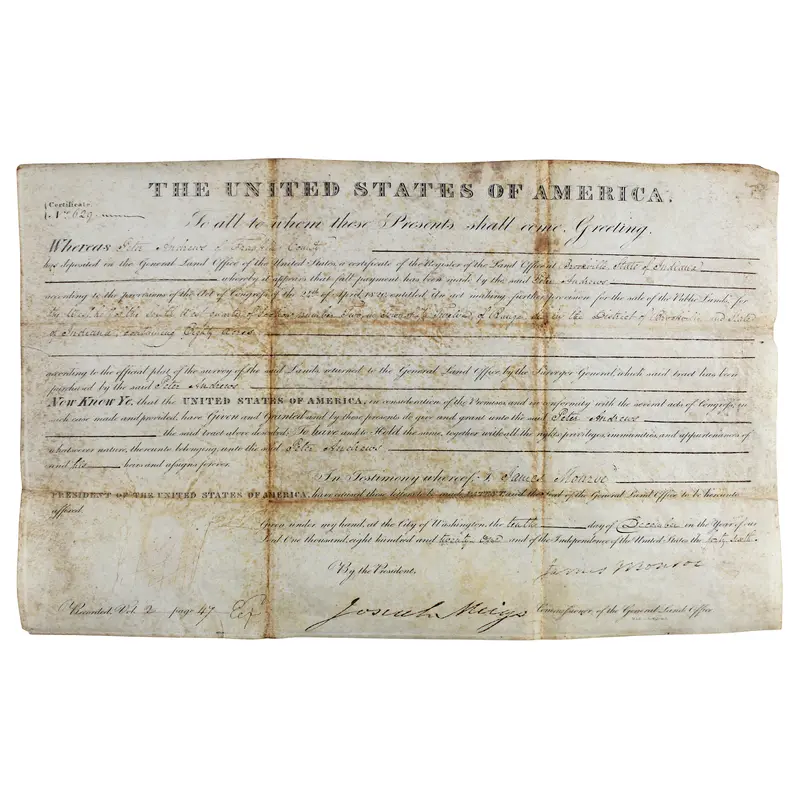 THE UNITED STATES OF AMERICA.
Certificate
No. 629
To all to whom these Presents shall come, Greeting.
Whereas Peter Andrews of County
has deposited in the General Land Office of the United States, a certificate of the Register of the Land Office at Brookville, State of Indiana,
whereby it appears that full payment has been made by the said Peter Andrews
according to the provisions of the Act of Congress of the 24th of April 1820, entitled An act making further provision for the sale of the Public Lands, for
the West half of the South quarter of Section in Township Twelve, of Range in the District of Brookville and State
of Indiana, containing Eighty Acres
according to the official plat of the survey of the said Lands returned to the General Land Office by the Surveyor General, which said tract has been
purchased by the said Peter Andrews
Now Know Ye, that the UNITED STATES OF AMERICA, in consideration of the Premises and in conformity with the several acts of Congress, in
such case made and provided, have Given and Granted and by these presents do give and grant unto the said Peter Andrews
the said tract above described; To have and to Hold the same, together with all the rights, privileges, immunities, and appurtenances of
whatsoever nature, thereunto belonging, unto the said Peter Andrews
and his heirs and assigns forever.
In Testimony whereof, I James Monroe
PRESIDENT OF THE UNITED STATES OF AMERICA, have caused these letters to be made PATENT, and the Seal of the General Land Office to be hereunto
affixed.
Given under my hand, at the City of Washington, the tenth day of December in the Year of our
Lord One thousand, eight hundred and twenty One and of the Independence of the United States the forty sixth.
By the President.
James Monroe
Recorded, Vol. 2 page 47
Josiah Meigs Commissioner of the General Land Office